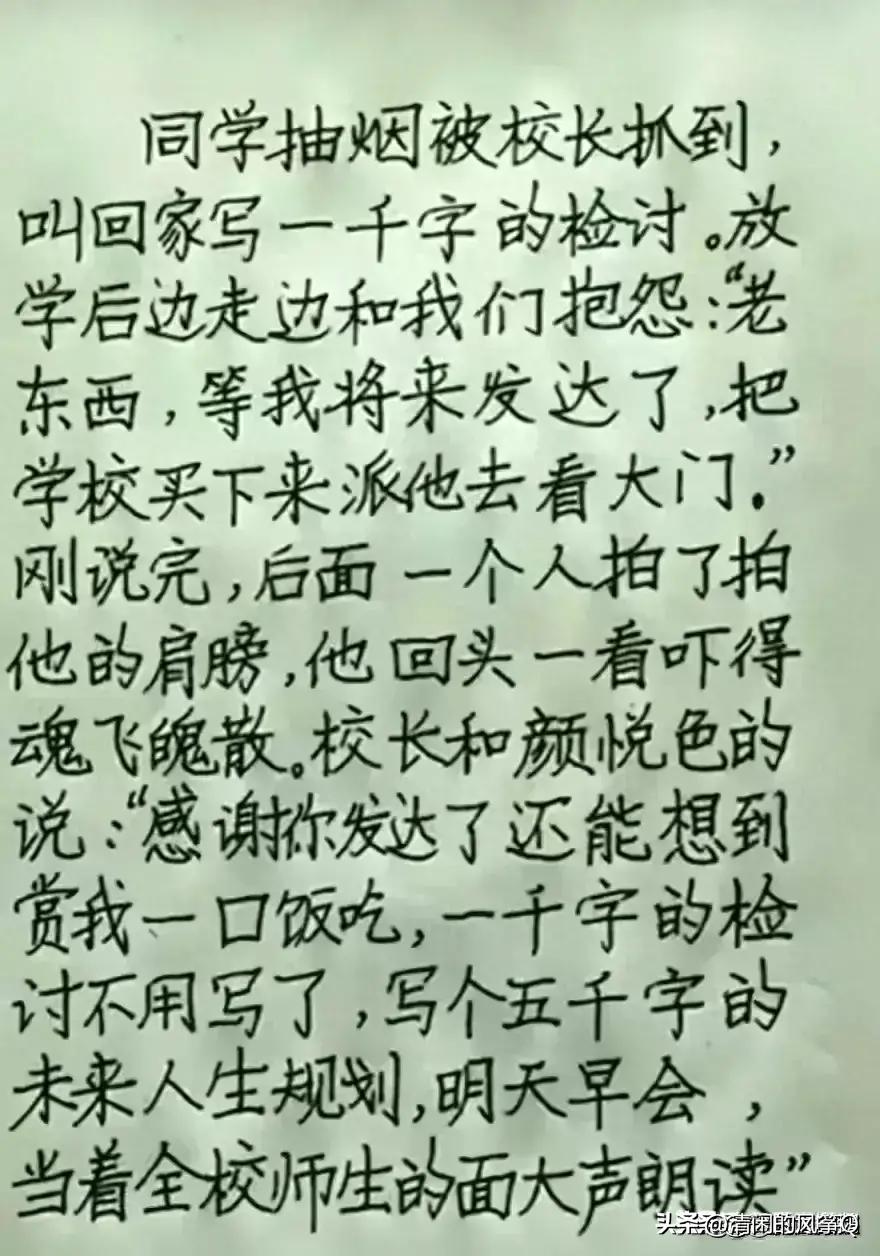 同学抽烟被校长抓到,
叫回家写一千字的检讨。放
学后边走边和我们抱怨:“老
东西,等我将来发达了,把
学校买下来派他去看大门.”
刚说完,后面一个人拍了拍
他的肩膀,他回头一看吓得
魂飞魄散。校长和颜悦色的
说:“感谢你发达了还能想到
赏我一口饭吃,一千字的检
讨不用写了,写个五千字的
未来人生规划,明天早会,
当着全校师生的面大声朗读”
头条 @清闲的风筝